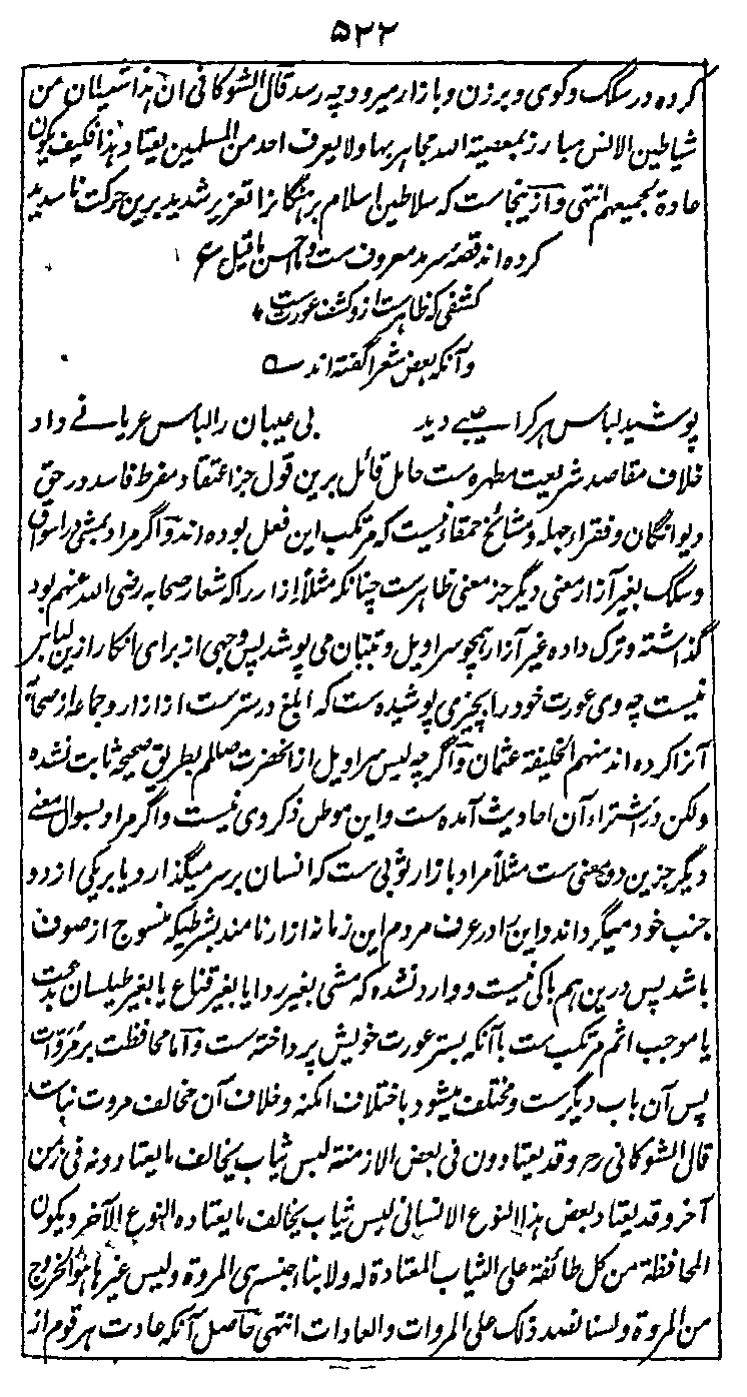 ۵۲۲
کرده در سکک وکوی و برزن و بازار میرود چه رسد قال الشوکانی ان هذا شیطان من
شیاطین الانس مبارز بمعصیة الله مجاهر بها ولا یعرف احد من المسلمین یعتاد هذا فکیف یکون
عادة لجمیعهم انتهی و ازینجاست که سلاطین اسلام برهنگانرا تعزیر شدید برین حرکت ناسدید
کرده اند قصهٔ سرمد معروف ست و ما احسن ما قیل ع
کشفی که ظاهرست ازو کشف عورت ست
و آنکه بعض شعرا گفته اند ــه
پوشید لباس هرکرا عیبے دید بی عیبان را لباس عریانے داد
خلاف مقاصد شریعت مطهره ست حامل قائل برین قول جز اعتقاد مفرط فاسد در حق
دیوانگان و فقراء جهله و مشائخ حمقاء نیست که مرتکب این فعل بوده اند و اگر مراد بمشی در اسواق
و سکک بغیر آزار معنی دیگر جز معنی ظاهرست چنانکه مثلاً ازار را که شعار صحابه رضی الله عنهم بود
گذاشته و ترک داده غیر آزار همچو سراویل و تبّان می پوشد پس وجهی از برای انکار ازین لباس
نیست چه وی عورت خود را بچیزی پوشیده ست که ابلغ در سترست از ازار و جماعه از صحابه
آنرا کرده اند منهم الخلیفة عثمان و اگرچه لبس سراویل از آنحضرت صلعم بطریق صحیحه ثابت نشده
ولکن در اشتراء آن احادیث آمده ست و این موطن ذکر وی نیست و اگر مراد بسوال معنے
دیگر جزین دو معنی ست مثلاً مراد بازار ثوبی ست که انسان بر سر میگذارد یا بر یکی از دو
جنب خود میگرداند و این را در عرف مردم این زمانه ازار نامند بشرطیکه منسوج از صوف
باشد پس درین هم باکی نیست و وارد نشده که مشی بغیر ردا یا بغیر قناع یا بغیر طیلسان بدعت
یا موجب اثم مرتکب ست با آنکه بستر عورت خویش پرداخته ست و اما محافظت بر مُرُوّات
پس آن باب دیگرست و مختلف میشود باختلاف امکنه و خلاف آن مخالف مروت نباشد
قال الشوکانی رح و قد یعتادون فی بعض الازمنة لبس ثیاب یخالف ما یعتادونه فی زمن
آخر و قد یعتاد بعض هذا النوع الانسانی لبس ثیاب یخالف ما یعتاده النوع الآخر و یکون
المحافظة من کل طائفة علی الثیاب المعتادة له ولابناء جنسه هی المروة و لبس غیرها هو الخروج
من المروة ولسنا بصدد ذلک علی المروات والعادات انتهی حاصل آنکه عادت هر قوم از